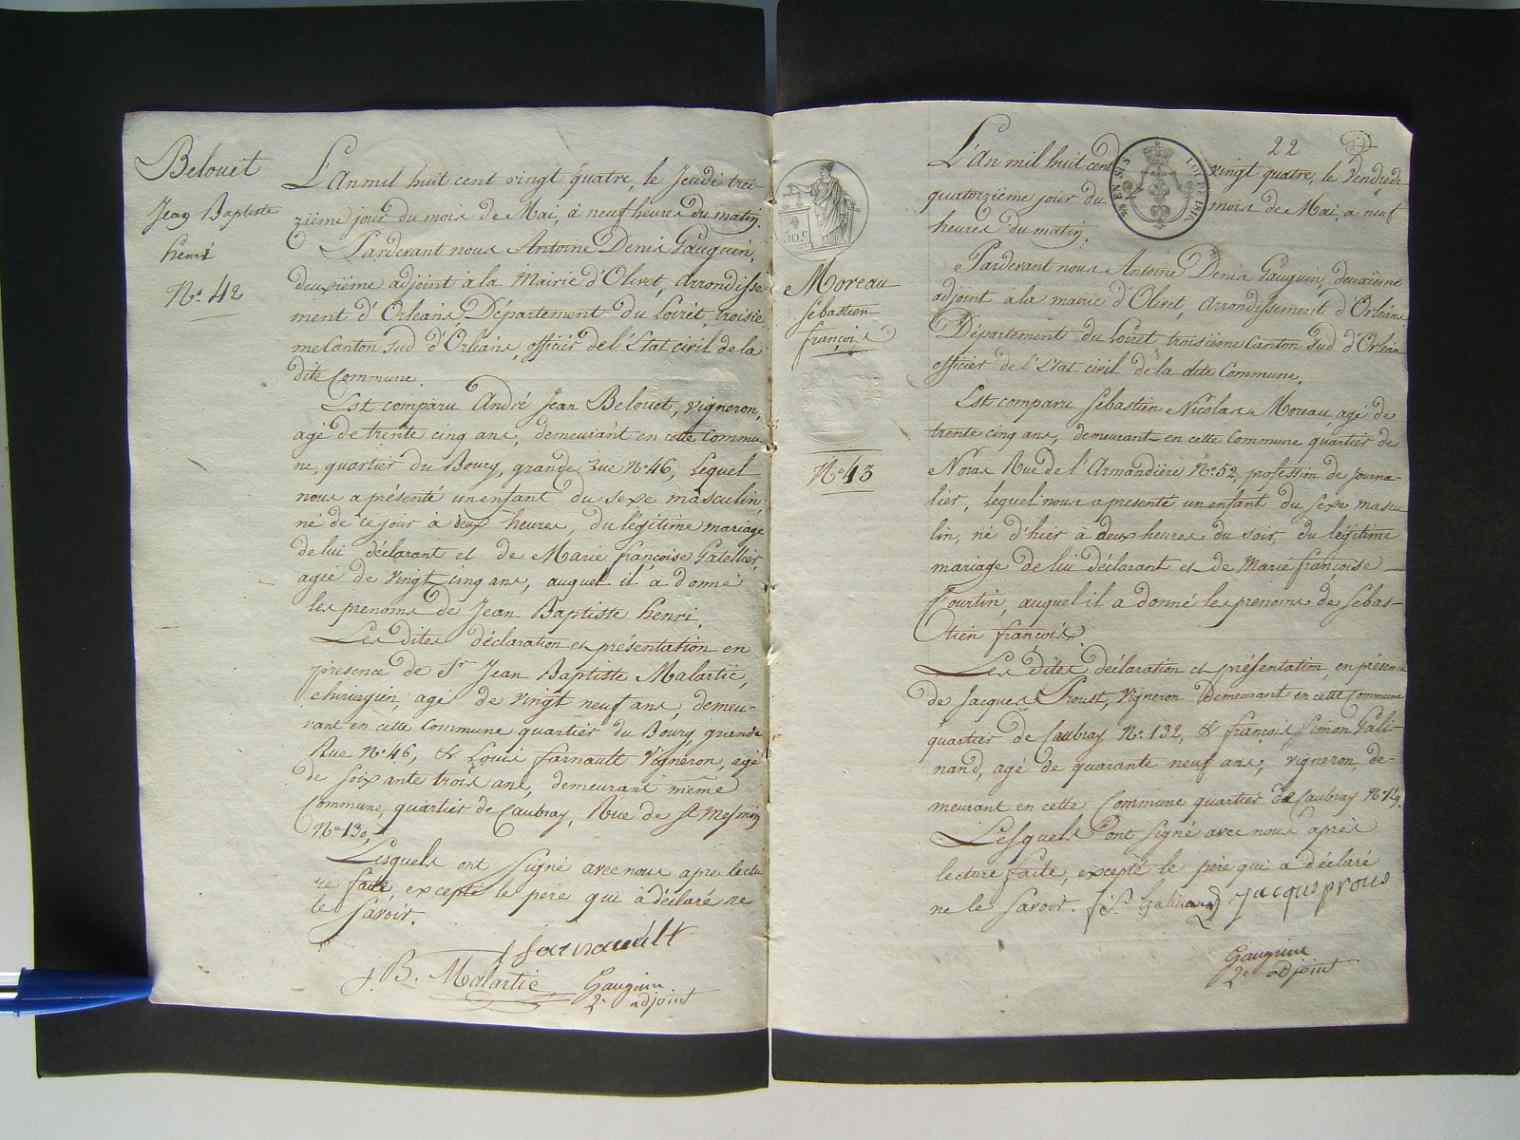 Belouet
Jean Baptiste
henri
N.° 42
L'An mil huit cent vingt quatre, le Jeudi trei-
zième jour du mois de Mai, à neuf heures du matin.
Pardevant nous Antoine Denis Gauguin,
deuxième adjoint à la Mairie d'Olivet, Arrondisse
ment d'Orléans, Département du Loiret, troisiè
me Canton sud d'Orléans, officier de l'Etat civil de la
dite Commune.
Est comparu André Jean Belouet, vigneron,
agé de trente cinq ans, demeurant en cette Commu
ne, quartier du Bourg, grande rue N.° 46, Lequel
nous a présenté un enfant du sexe masculin,
né de ce jour à deux heures, du légitime mariage
de lui déclarant et de Marie françoise Gatellier,
agée de vingt cinq ans, auquel il a donné
les prenoms de Jean Baptiste henri.
Les dites déclaration et présentation en
présence de Sr Jean Baptiste Malartie,
chirurgien, agé de vingt neuf ans, demeu-
rant en cette Commune quartier du Bourg grande
Rue N.° 46, & Louis farnault vigneron, agé
de soixante trois ans, demeurant même
Commune, quartier de Caubray, Rue de St Mesmin
N.° 130,
Lesquels ont signé avec nous après lectu
re faite, excepté le père qui a déclaré ne
le savoir.
L farnault
J. B. Malartie Gauguin
2e adjoint
22
L'An mil huit cent vingt quatre, le Vendredi
quatorzième jour du mois de Mai, à neuf
heures du matin.
Moreau
Sébastien
françois
N.° 43
Pardevant nous Antoine Denis Gauguin, deuxième
adjoint à la mairie d'Olivet, Arrondissement d'Orléans
Département du Loiret troisième Canton Sud d'Orléans
officier de l'Etat civil de la dite Commune.
Est comparu Sébastien Nicolas Moreau agé de
trente cinq ans, demeurant en cette Commune quartier de
Noras Rue de l'Armandière N.° 52, profession de journa-
lier, lequel nous a présenté un enfant du sexe mascu
lin, né d'hier à deux heures du soir du légitime
mariage de lui déclarant et de Marie françoise
Courtin, auquel il a donné les prenoms de Sébas-
tien françois.
Les dites déclaration et présentation, en présence
de Jacques Proust, vigneron demeurant en cette Commune
quartier de Caubray N.° 132, & françois Simon Gali-
nand, agé de quarante neuf ans, vigneron, de-
meurant en cette Commune quartier de Caubray
Lesquels ont signé avec nous après
lecture faite, excepté le père qui a déclaré
ne le savoir. Jacque prous
Gauguin
2e adjoint